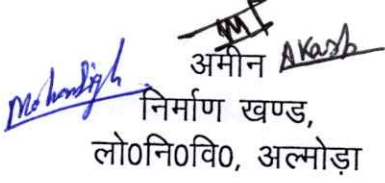 अमीन Akash
Mohansigh निर्माण खण्ड,
लो०नि०वि०, अल्मोड़ा